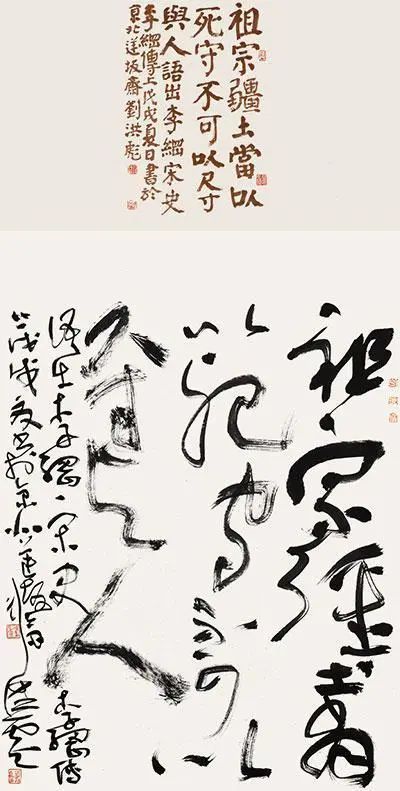 祖宗疆土當以
死守不可以尺寸
與人語出李綱宋史
李綱傳上戊戌夏日書於
京北蓮坂齋劉洪彪
祖宗疆土當
以死守不可以
尺寸與人
語出李綱宋史李綱傳
上戊戌夏書於京北蓮坂齋洪彪